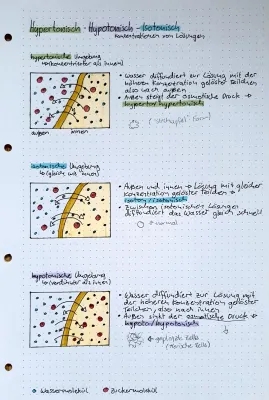 Hypertonisch - Hypotonisch - Isotonisch
Konzentrationen von Lösungen
hypertonische Umgebung
↳ (konzentrierter als innen)
• Wasser diffundiert zur Lösung mit der
höheren Konzentration gelöster Teilchen
also nach außen
• Außen steigt der osmotische Druck →
hyperton/hypertonisch
außen innen
isotonische Umgebung
↳ (gleich wie innen)
• Außen und innen → Lösung mit gleicher
Konzentration gelöster Teilchen →
isoton/isotonisch
• Zwischen isotonischen Lösungen
diffundiert das Wasser gleich schnell
→ normal
hypotonische Umgebung
↳ (verdünnter als innen)
• Wasser diffundiert zur Lösung mit
der höheren Konzentration gelöster
Teilchen, also nach innen
• Außen sinkt der osmotische Druck →
hypoton/hypotonisch
geplatzte Zelle
Wassermolekül
Zuckermolekül